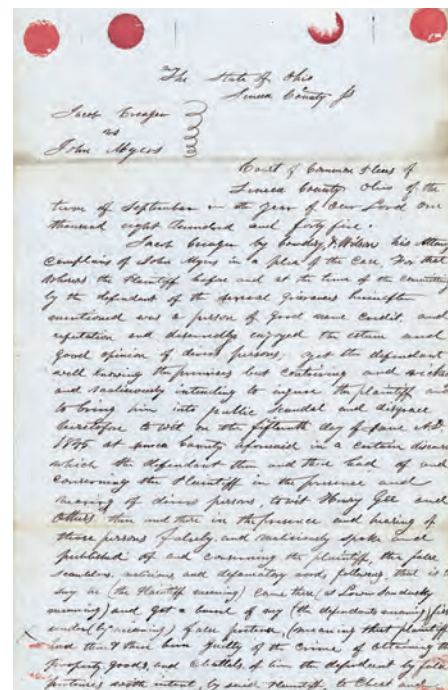 The State of Ohio
Seneca County ss
Jacob Creager
vs
John Myers
Court of Common Pleas of
Seneca County Ohio of the
term of September in the year of our Lord one
thousand eight hundred and forty five.
Jacob Creager by & his Attorney
complains of John Myers in a plea of the Case For that
whereas the Plaintiff before and at the time of the committing
by the defendant of the several grievances hereinafter
mentioned was a person of good name credit and
reputation and deservedly enjoyed the esteem and
good opinion of divers persons; yet the defendant
well knowing the premises but contriving and wickedly
and maliciously intending to injure the plaintiff and
to bring him into public scandal and disgrace
heretofore to wit on the fifteenth day of June AD.
1845 at Seneca County aforesaid in a certain discourse
which the defendant then and there had of and
concerning the Plaintiff in the presence and
hearing of divers persons, to wit Henry Gee and
others then and there in the presence and hearing of
those persons falsely and maliciously spoke and
published of and concerning the plaintiff, the false
scandalous, malicious and defamatory words following, that is to
say he (the Plaintiff meaning) came there (at Lower Sandusky
meaning) and got a of my (the defendants meaning)
under (by meaning) false pretence, (meaning that plaintiff
had then & there been guilty of the crime of obtaining the
property, goods, and chattels of him the defendant by false
pretences with intent by said Plaintiff to Cheat and